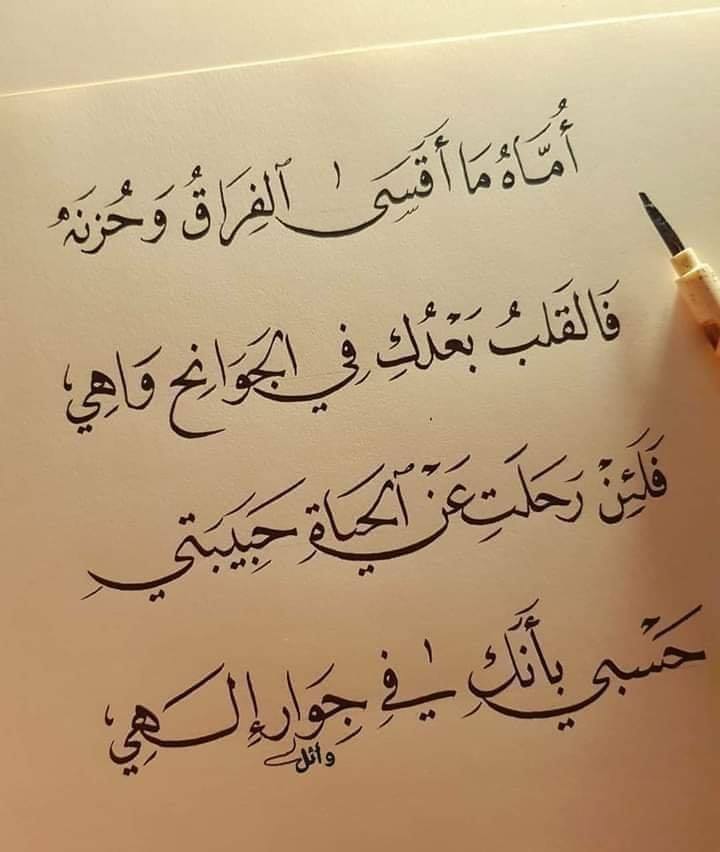 أُمَّاهُ مَا أَقسَى ٱلفِرَاقُ وَحُزنَهُ
فَالقَلبُ بَعْدُكِ فِي الجَوَانِحِ وَاهِي
فَلَئِنْ رَحَلَتِ عَنْ ٱلحَيَاةِ حَبِيبَتِي
حَسْبِي بأَنَّكِ فِي جِوَارِ إِلَهِي
وائل